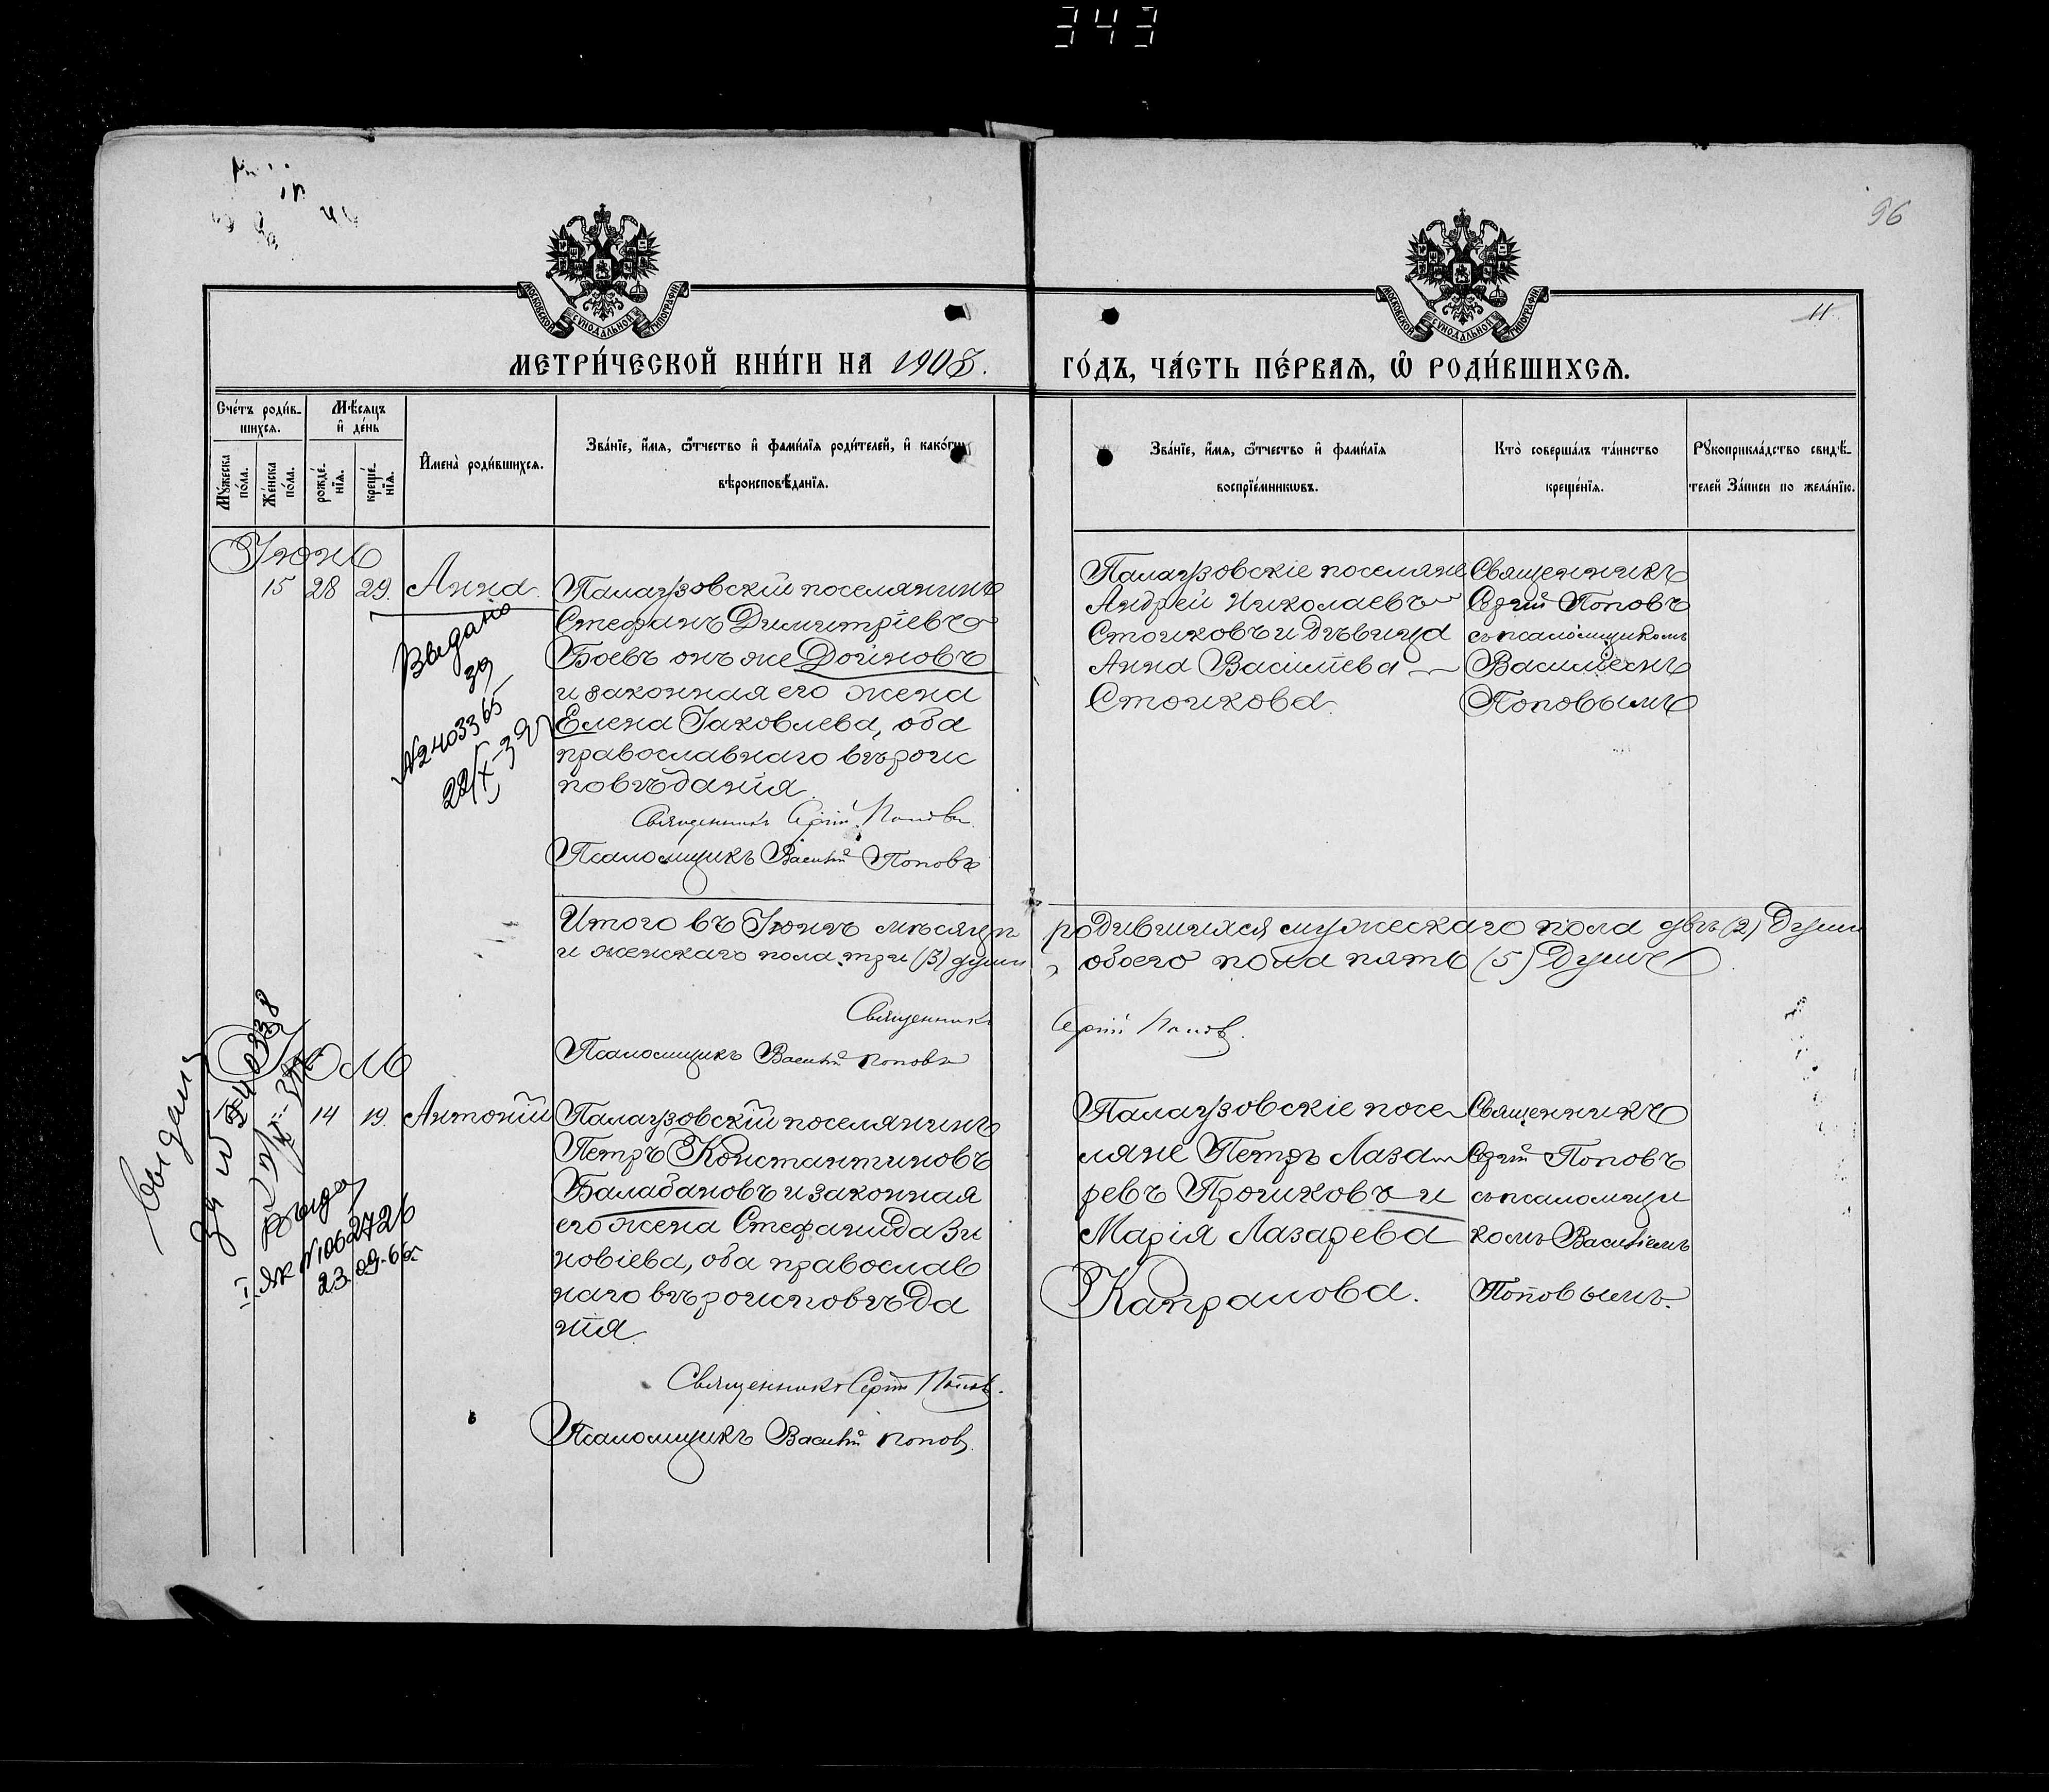 343
96
11
МОСКОВСКОЙ СѴНОДАЛЬНОЙ ТИПОГРАФІИ
МОСКОВСКОЙ СѴНОДАЛЬНОЙ ТИПОГРАФІИ
МЕТРИ́ЧЕСКОЙ КНИ́ГИ НА 1908. ГО́ДЪ, ЧА́СТЬ ПЕ́РВАѦ, Ѽ РОДИ́ВШИХСѦ.
Сче́тъ роди́в-
шихсѧ.
Мꙋ́жеска по́ла.
Же́нска по́ла.
Мѣ́сѧцъ
и҆ де́нь
рожде́-
нїѧ.
креще́-
нїѧ.
И҆мена̀ роди́вшихсѧ.
Зва́нїе, и҆́мѧ, ѻ҆́тчество и҆ фами́лїѧ роди́телей, и҆ како́гѡ
вѣроисповѣ́данїѧ.
Зва́нїе, и҆́мѧ, ѻ҆́тчество и҆ фами́лїѧ
воспрїе́мникѡвъ.
Кто̀ соверша́лъ та́инство
креще́нїѧ.
Рꙋкоприкла́дство свидѣ́-
телей За́писи по жела́нїю.
Іюнь
15 28 29. Анна.
Палаузовскій поселянинъ
Стефанъ Димитріевъ
Боевъ онъ же Дойновъ
и законная его жена
Елена Іаковлева, оба
православнаго вѣроис
повѣданія.
Священникъ Сергій Поповъ.
Псаломщикъ Василій Поповъ
Палаузовскіе поселяне
Андрей Николаевъ
Стоиковъ и дѣвица
Анна Василіева
Стоикова.
Священникъ
Сергій Поповъ
съ псаломщикомъ
Василіемъ
Поповымъ
Выдано
39
№2403365
22/X-39
Итого въ Іюнѣ мѣсяцѣ родившихся мужескаго пола двѣ (2) души
и женскаго пола три (3) души, обоего пола пять (5) душъ
Священникъ Сергій Поповъ.
Псаломщикъ Василій Поповъ
Іюль
14 19. Антоній
Палаузовскій поселянинъ
Петръ Константиновъ
Балабановъ и законная
его жена Стефанида Зи
новіева, оба православ
наго вѣроисповѣда
нія.
Священникъ Сергій Поповъ.
Псаломщикъ Василій Поповъ.
Палаузовскіе посе
ляне Петръ Лаза
ревъ Проиковъ и
Марія Лазарева
Капралова.
Священникъ
Сергій Поповъ
съ псаломщи
комъ Василіемъ
Поповымъ.
Выдан
ЯК №1062726
23.09.66г